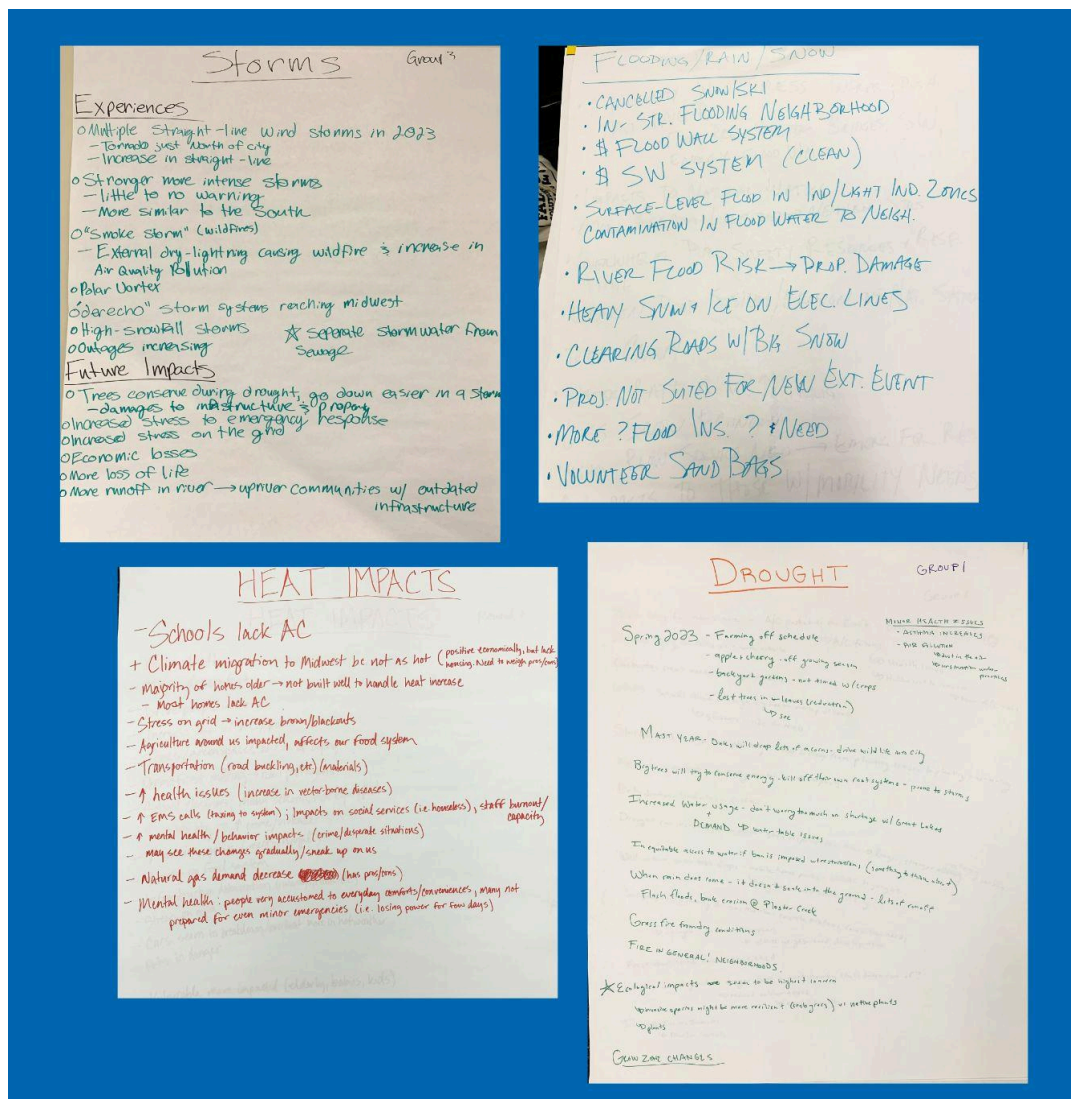 Storms
Group 3
Experiences
o Multiple Straight-line wind storms in 2023
- Tornado just North of city
- Increase in straight-line
o Stronger more intense storms
- little to no warning
- More similar to the South
o "Smoke storm" (wildfires)
- External dry-lightning causing wildfire & increase in
Air Quality Pollution
o Polar Vortex
o "derecho" storm systems reaching midwest
o High-snowfall storms
o Outages increasing
☆ Seperate stormwater from
Sewage
Future Impacts
o Trees conserve during drought, go down easier in a storm
- damages to infrastructure & Property
o Increased stress to emergency response
o Increased stress on the grid
o Economic losses
o More loss of life
o More runoff in river → upriver communities w/ outdated
infrastructure
FLOODING/RAIN/SNOW
• CANCELLED SNOW/SKI
• IN-STR. FLOODING NEIGHBORHOOD
• $ FLOOD WALL SYSTEM
• $ SW SYSTEM (CLEAN)
• SURFACE-LEVEL FLOOD IN IND/LIGHT IND. ZONES
CONTAMINATION IN FLOOD WATER TO NEIGH.
• RIVER FLOOD RISK → PROP. DAMAGE
• HEAVY SNOW & ICE ON ELEC. LINES
• CLEARING ROADS W/BIG SNOW
• PROJ. NOT SUITED FOR NEW EXT. EVENT
• MORE ? FLOOD INS. ? & NEED
• VOLUNTEER SAND BAGS
HEAT IMPACTS
- Schools lack AC
+ Climate migration to Midwest bc not as hot (positive economically, but lack
housing. Need to weigh pros/cons)
- Majority of homes older → not built well to handle heat increase
- Most homes lack AC
- Stress on grid → increase brown/blackouts
- Agriculture around us impacted, affects our food system
- Transportation (road buckling, etc) (materials)
- ↑ health issues (increase in vector-borne diseases)
- ↑ EMS calls (taxing to system); Impacts on social services (i.e. homeless), staff burnout/
capacity
- ↑ mental health/behavior impacts (crime/desperate situations)
- may see these changes gradually/sneak up on us
- Natural gas demand decrease (has pros/cons)
- Mental health: people very accustomed to everyday comforts/conveniences, many not
prepared for even minor emergencies (i.e. losing power for few days)
DROUGHT
GROUP 1
MINOR HEALTH ISSUES
- ASTHMA INCREASES
- AIR POLLUTION
Spring 2023 - Farming off schedule
- apple & cherry - off growing season
- backyard gardens - not aligned w/crops
- lost trees in - leaves (reduration)
↳ see
MAST YEAR - Oaks will drop lots of acorns - drive wildlife into city
Big trees will try to conserve energy - kill off their own root systems - prone to storms
Increased Water usage - don't worry too much on shortage w/ Great Lakes
+
DEMAND ↳ water table issues
Inequitable access to water if ban is imposed w/restrictions (something to think about)
When rain does come - it doesn't soak into the ground - lots of runoff
Flash floods, bank erosion @ Plaster Creek
Grass fire foundry conditions
FIRE IN GENERAL! NEIGHBORHOODS
☆ Ecological impacts we seem to be highest concern
↳ invasive species might be more resilient (crabgrass) vs native plants
↳ plants
GROW ZONE CHANGES